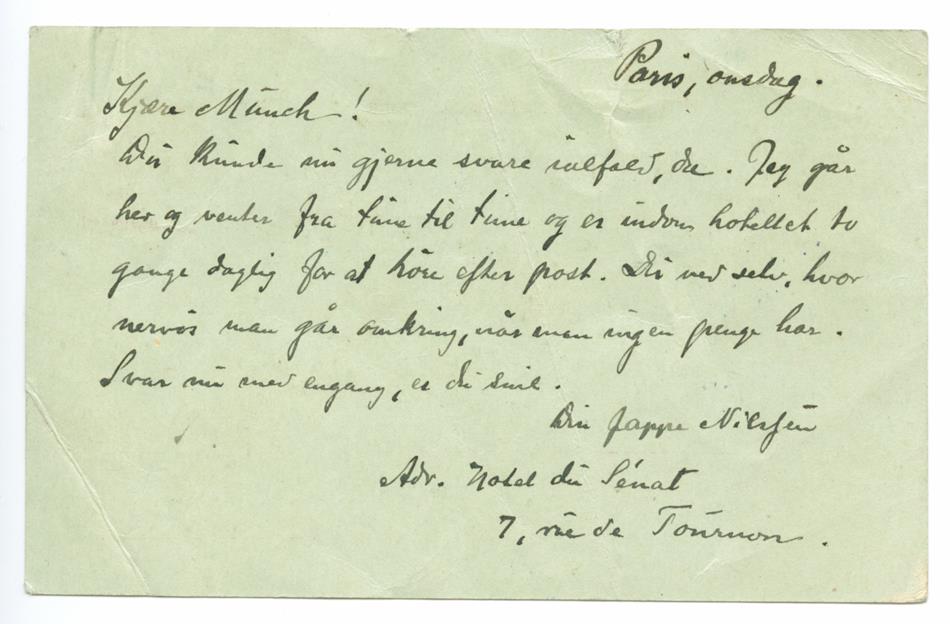 Paris, onsdag.
Kjære Munch!
Du kunde nu gjerne svare ialfald, du. Jeg går
her og venter fra time til time og er indom hotellet to
gange daglig for at høre efter post. Du ved selv, hvor
nervös man går omkring, når man ingen penge har.
Svar nu med engang, er du snil.
Din Jappe Nilssen
Adr. Hotel du Sénat
7, rue de Tournon.